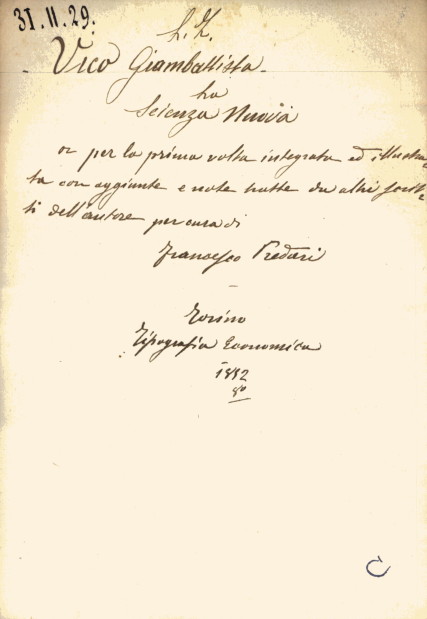 31.11.29.
L. Z.
Vico Giambattista.
La
Scienza Nuova
or per la prima volta integrata ed illustra-
ta con aggiunte e note tratte da altri scrit-
ti dell'autore per cura di
Francesco Predari
Torino
Tipografia Economica
1852
8º
C